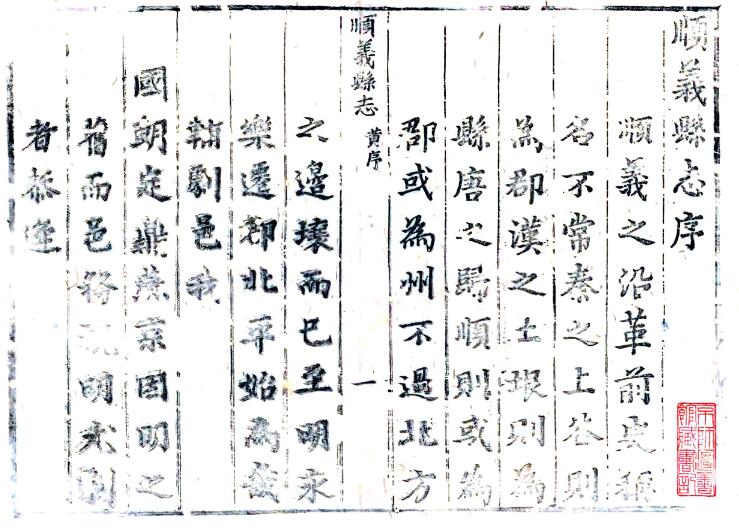 順義縣志序
順義之沿革前史稱
名不常秦之上谷則
為郡漢之土垠則為
縣唐之歸順則或為
郡或為州不過北方
順義縣志 黄序 一
之邊壤而已至明永
樂遷都北平始為畿
輔劇邑我
國朝定鼎燕京因明之
舊而邑務視明尤劇
者拯塗